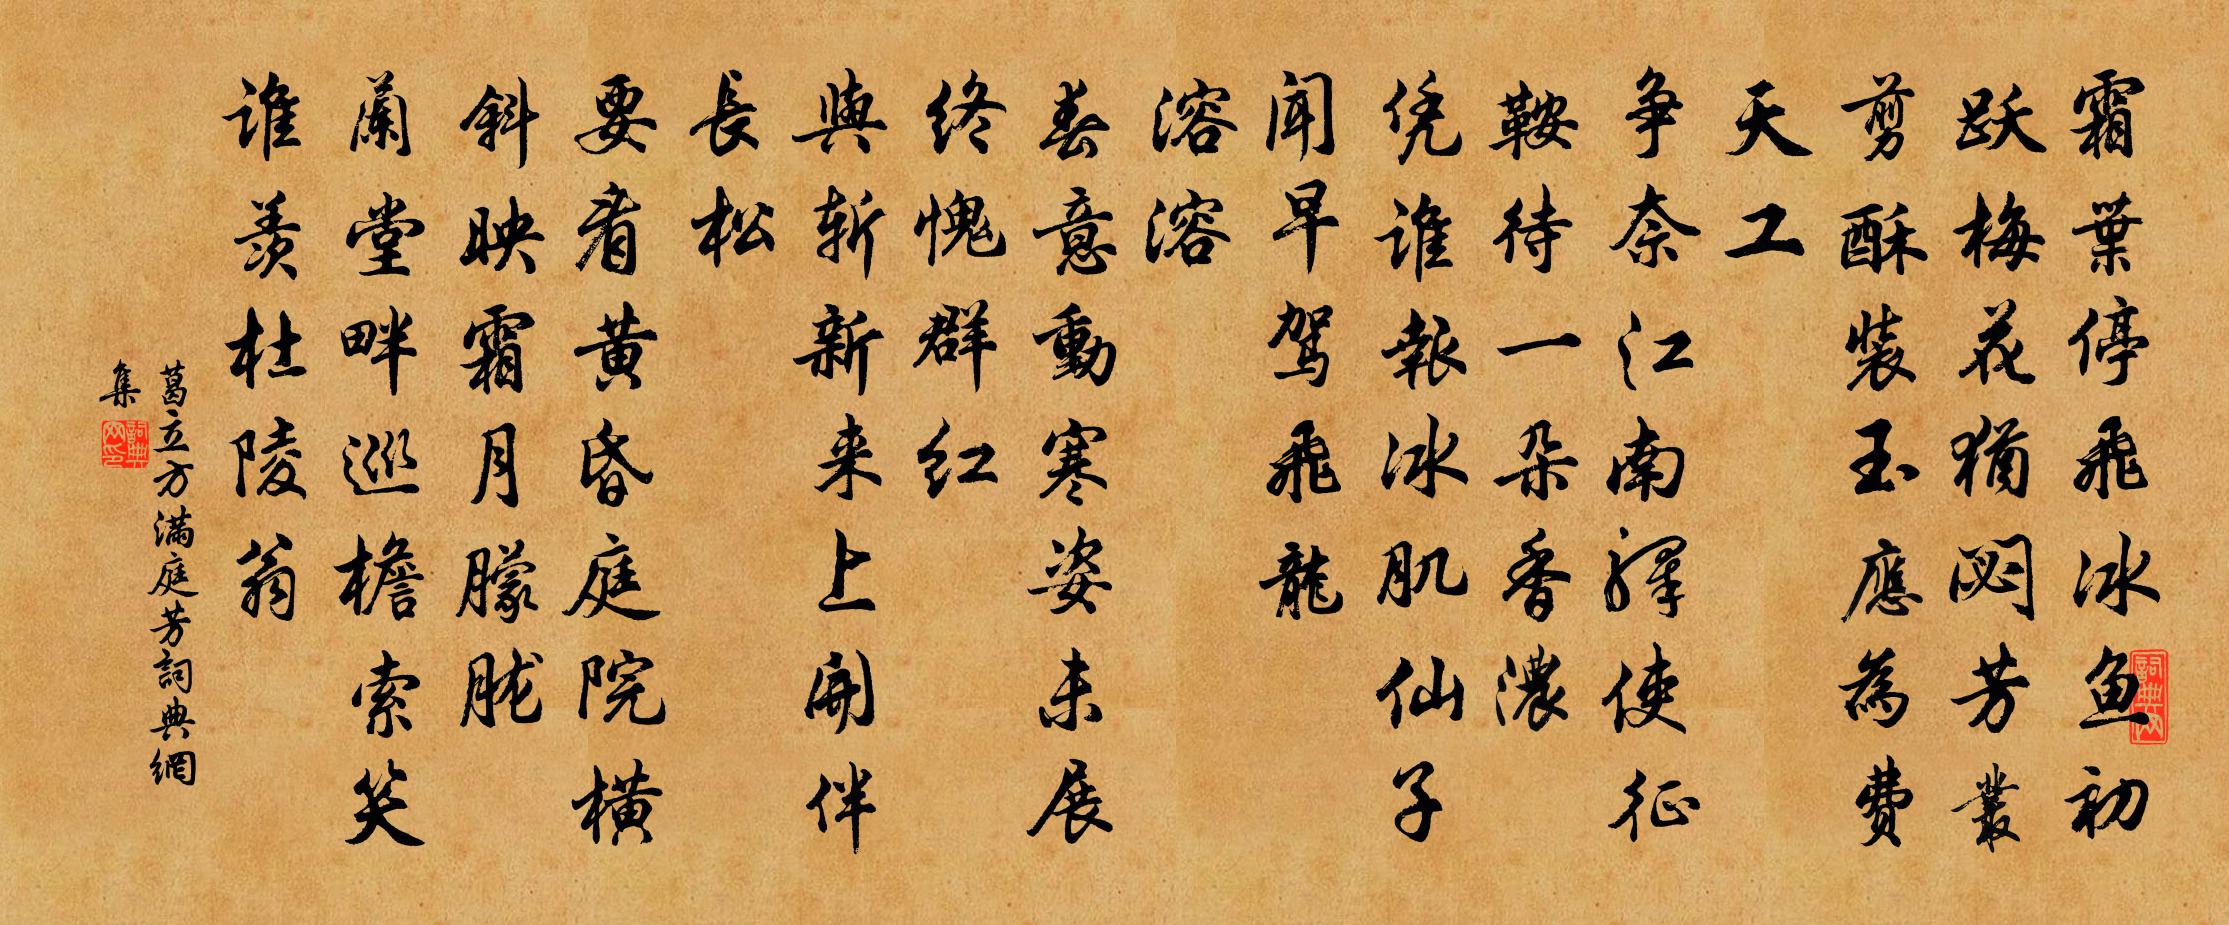 霜葉停飛冰魚初
跃梅花猶閟芳叢
剪酥裝玉應為費
天工
争奈江南驛使征
鞍待一朵香濃
凭誰報冰肌仙子
聞早駕飛龍
溶溶
春意動寒姿未展
終愧群紅
與斬新来上開伴
長松
要看黄昏庭院橫
斜映霜月朦朧
蘭堂畔巡檐索笑
誰羨杜陵翁
葛立方滿庭芳詞典網
集
詞典网
詞典网印